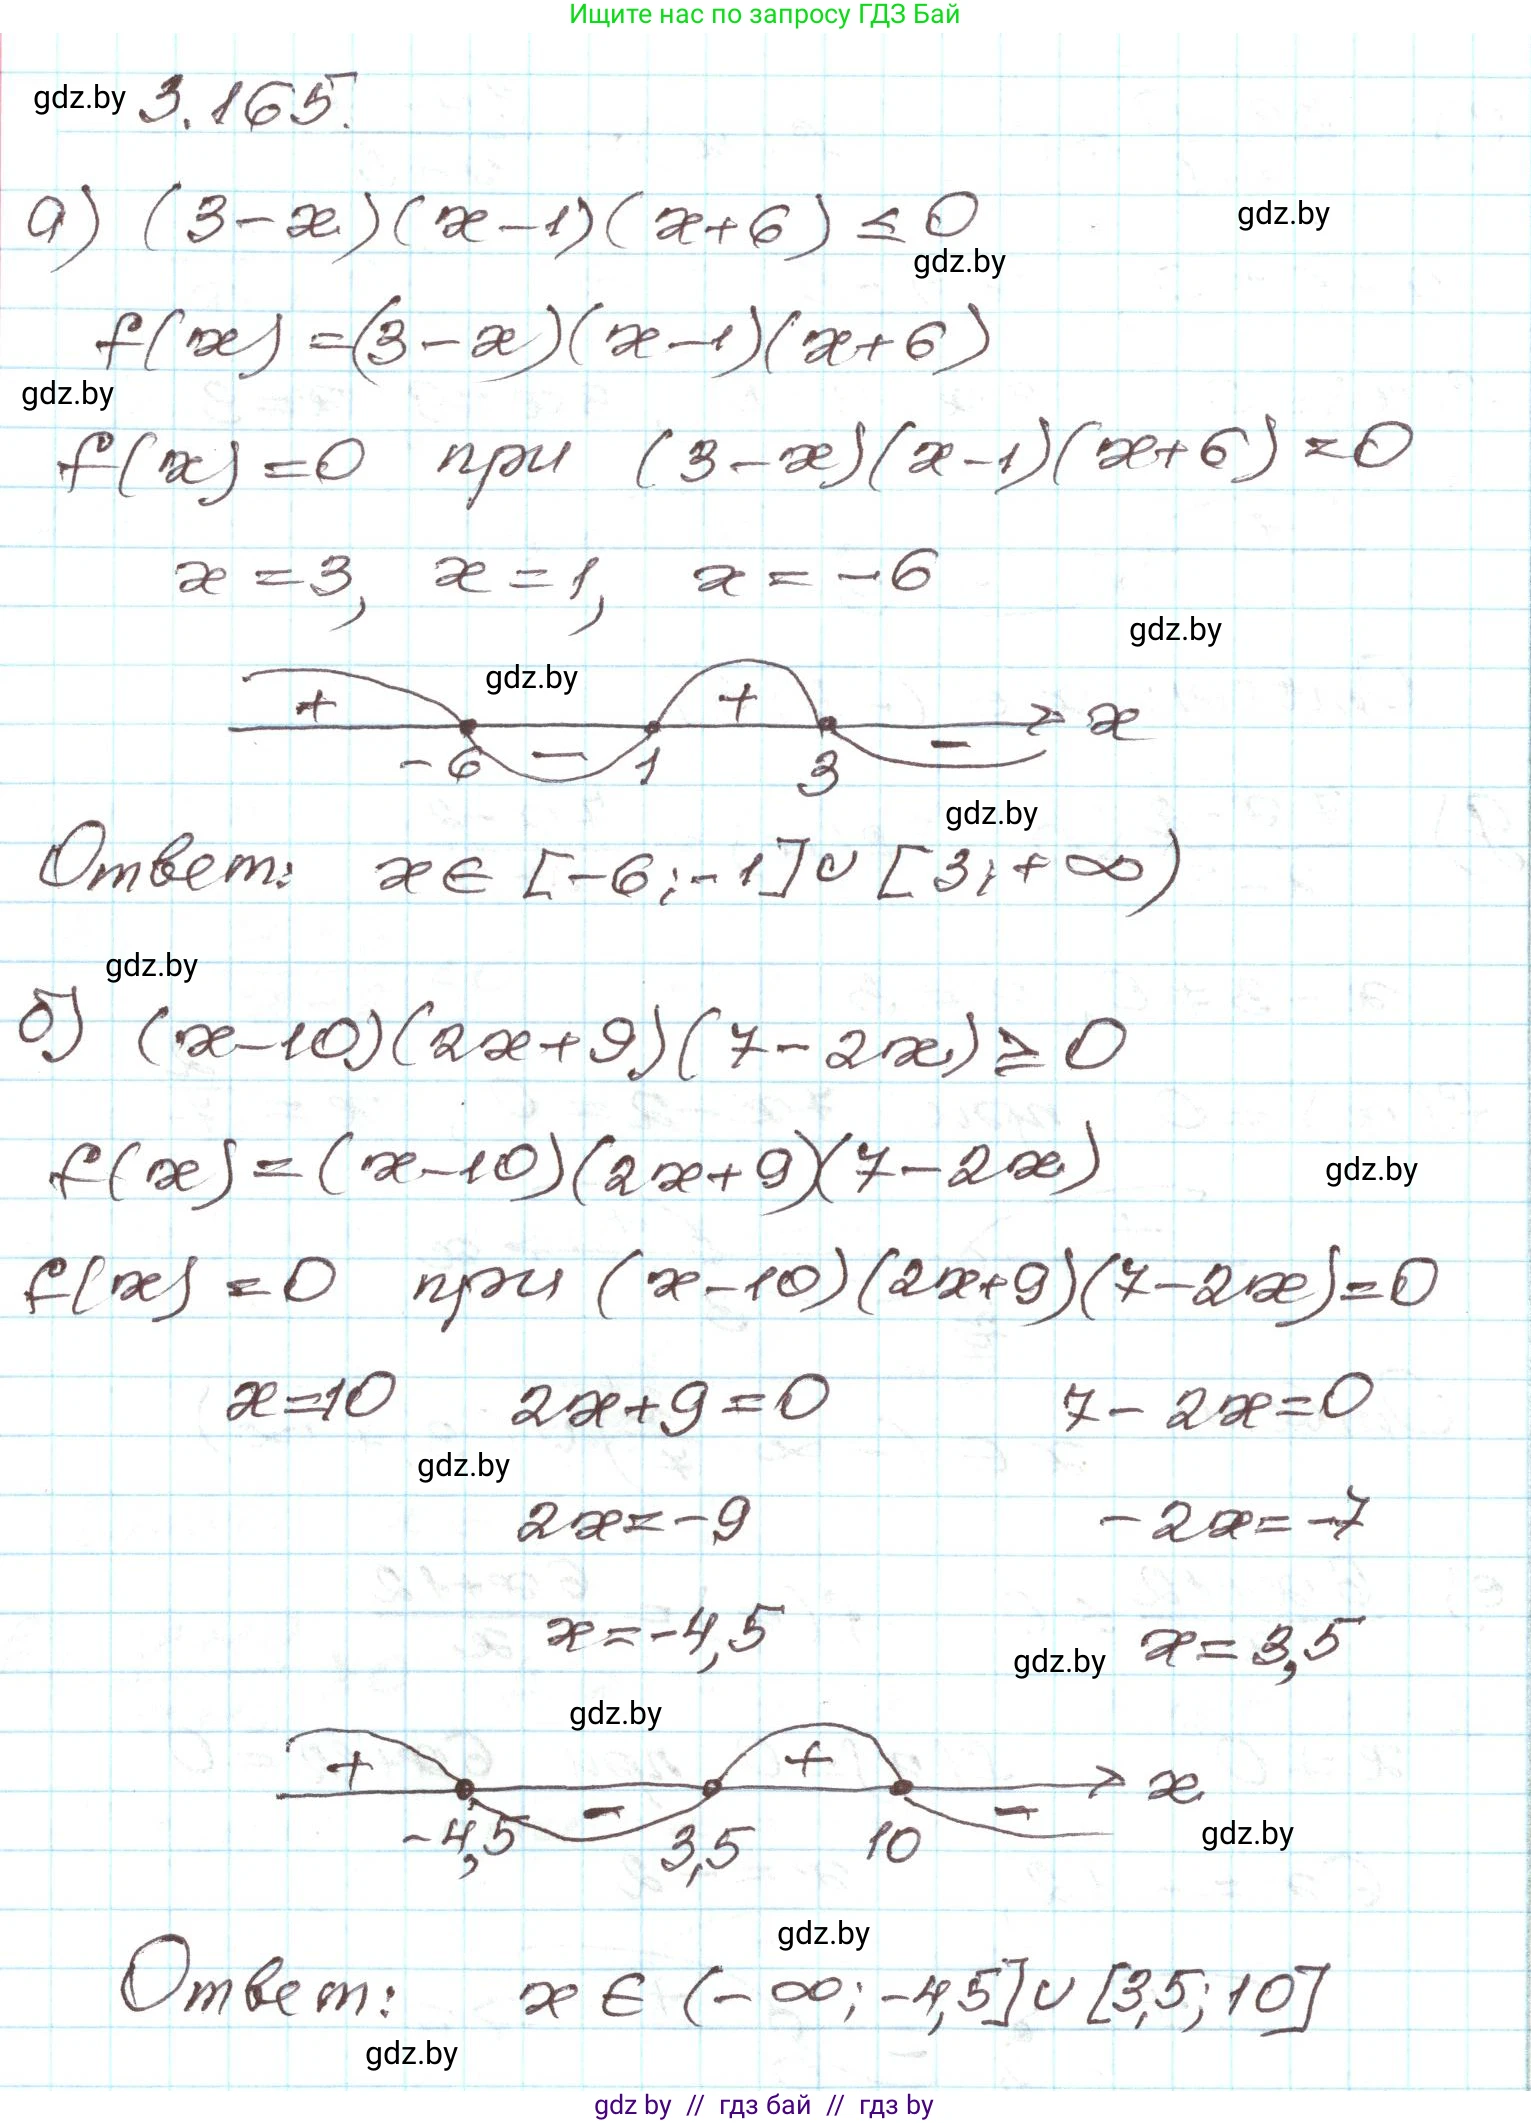 Ищите нас по запросу ГДЗ Бай
gdz.by 3.165.
а) (3-x)(x-1)(x+6) ≤ 0
gdz.by
gdz.by
f(x) = (3-x)(x-1)(x+6)
gdz.by
f(x) = 0 при (3-x)(x-1)(x+6) = 0
x = 3, x = 1, x = -6
gdz.by
gdz.by
+ - + - x
-6 1 3
gdz.by
Ответ: x ∈ [-6; -1] ∪ [3; +∞)
gdz.by
б) (x-10)(2x+9)(7-2x) ≥ 0
f(x) = (x-10)(2x+9)(7-2x)
gdz.by
f(x) = 0 при (x-10)(2x+9)(7-2x) = 0
x=10 2x+9=0 7-2x=0
gdz.by
2x=-9 -2x=-7
x=-4,5 x=3,5
gdz.by
gdz.by
+ - + - x
-4,5 3,5 10
gdz.by
gdz.by
Ответ: x ∈ (-∞; -4,5] ∪ [3,5; 10]
gdz.by
gdz by // гдз бай // гдз by